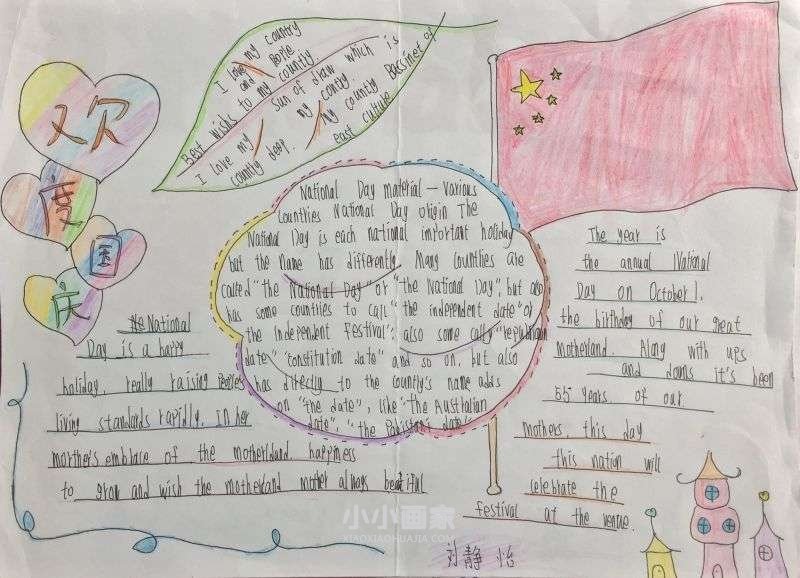 欢
度
国
庆
I love my country
and Borie
Best wishes to my country
Sun of draw which is
I love my my contry.
country deep. My country Bassinet of
east culture
National Day material — various
Countries National Day origin The
National Day is each national important holiday
but the name has differently. Many countries are
called "the National Day" or "the National Day", but also
has some countries to call "the independent date" or
the Independent Festival": also some cally "republican
date" "constitution date" and so on, but also
has directly to the country's name adds
on "the date", like "The Australian
date", "the Pakistani date"
The National
Day is a happy
holiday, really raising people's
living standards rapidly, in her
morther's embrace of the motherldand happiness
to grow and wish the motherland mother always beatiful
The year is
the annual National
Day on October 1,
the birthday of our great
motherland. Along with ups
and downs it's been
55 years of our
mothers, this day
this nation will
celebrate the
festival at the venue.
小小画家
XIAOXIAOHUAJIA.COM
刘静怡